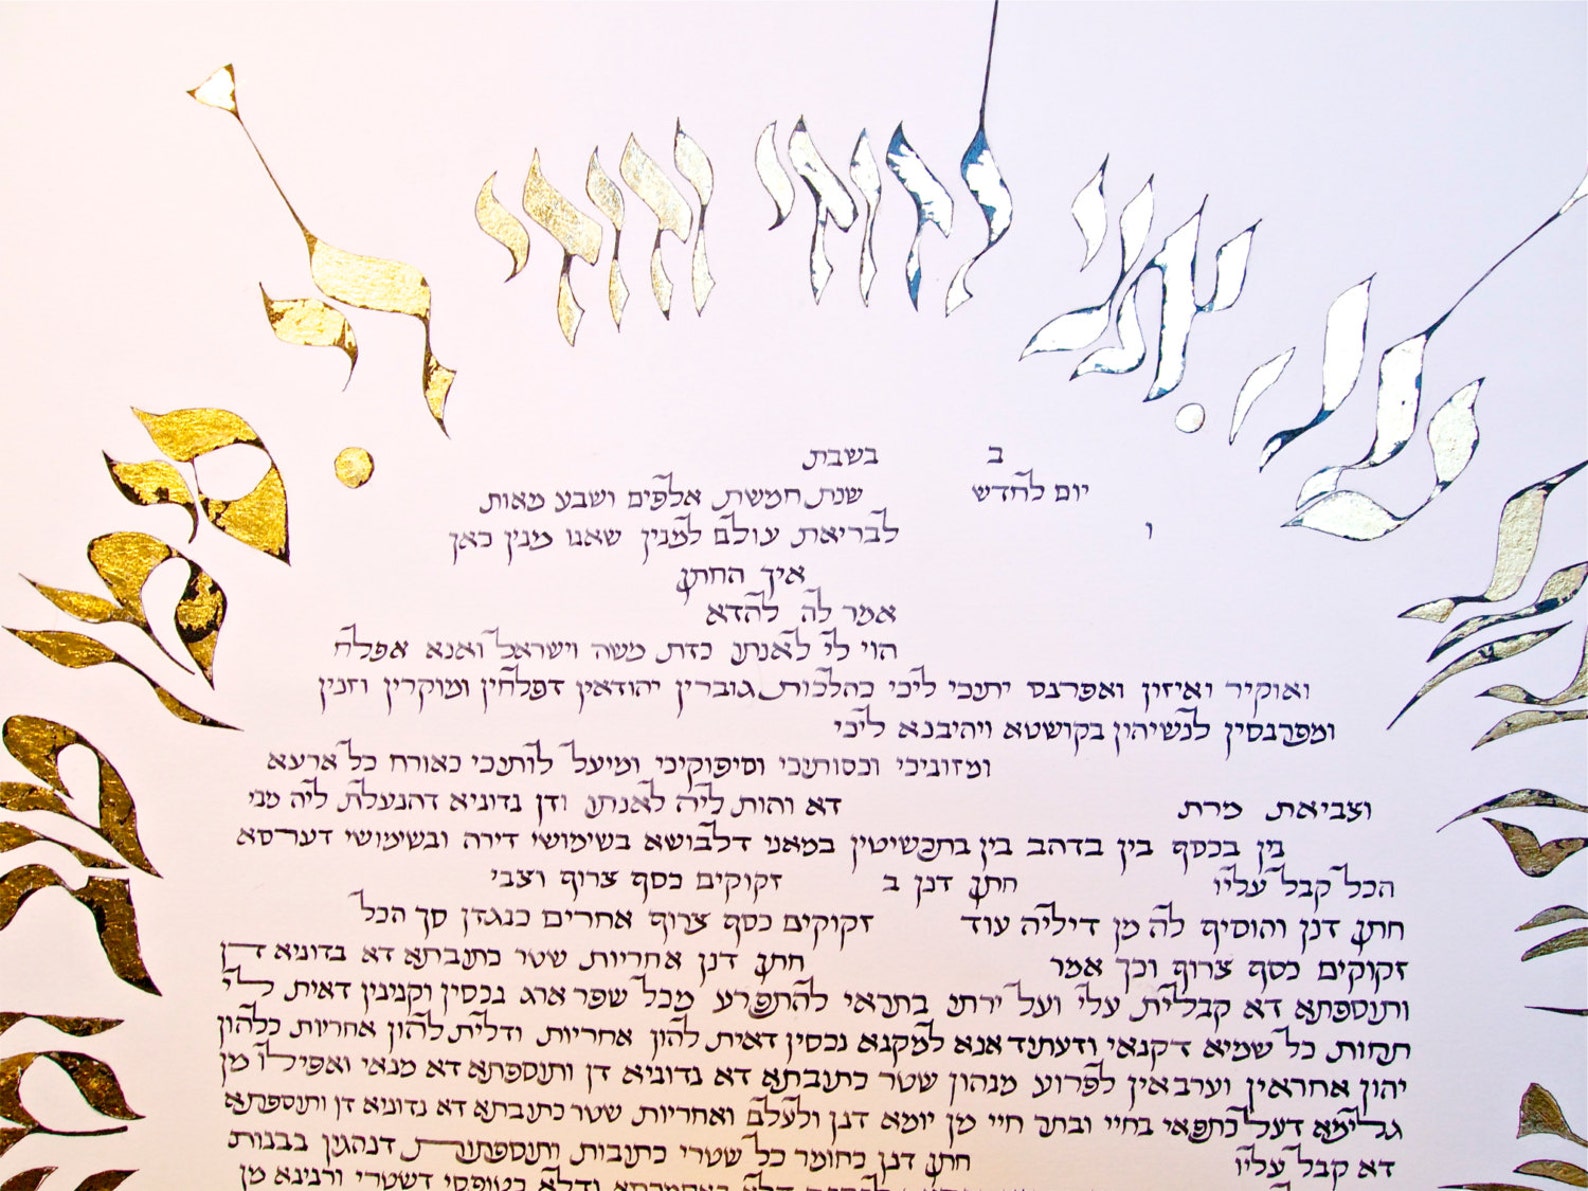 אני לדודי ודודי לי
ב בשבת
יום לחדש שנת חמשת אלפים ושבע מאות
ו לבריאת עולם למנין שאנו מנין כאן
איך החתן
אמר לה להדא
הוי לי לאנתו כדת משה וישראל ואנא אפלח
ואוקיר ואיזון ואפרנס יתיכי ליכי כהלכות גוברין יהודאין דפלחין ומוקרין וזנין
ומפרנסין לנשיהון בקושטא ויהיבנא ליכי
ומזוניכי וכסותיכי וסיפוקיכי ומיעל לותיכי כאורח כל ארעא
וצביאת מרת דא והות ליה לאנתו ודן נדוניא דהנעלת ליה מבי
בין בכסף בין בדהב בין בתכשיטין במאני דלבושא בשימושי דירה ובשימושי דערסא
הכל קבל עליו חתן דנן ב זקוקים כסף צרוף וצבי
חתן דנן והוסיף לה מן דיליה עוד זקוקים כסף צרוף אחרים כנגדן סך הכל
זקוקים כסף צרוף וכך אמר חתן דנן אחריות שטר כתובתא דא נדוניא דן
ותוספתא דא קבלית עלי ועל ירתי בתראי להתפרע מכל שפר ארג נכסין וקנינין דאית לי
תחות כל שמיא דקנאי ודעתיד אנא למקנא נכסין דאית להון אחריות ודלית להון אחריות כלהון
יהון אחראין וערבאין לפרוע מנהון שטר כתובתא דא נדוניא דן ותוספתא דא מנאי ואפילו מן
גלימא דעל כתפאי בחיי ובתר חיי מן יומא דנן ולעלם ואחריות שטר כתובתא דא נדוניא דן ותוספתא
דא קבל עליו חתן דנן כחומר כל שטרי כתובות ותוספתות דנהגין בבנות
דלא כאסמכתא ודלא כטופסי דשטרי וקנינא מן